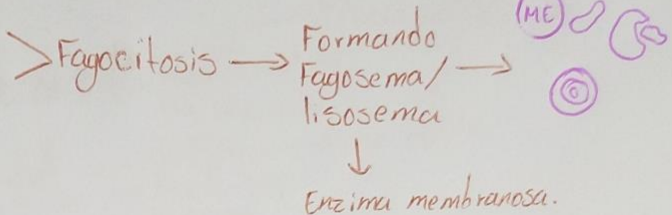 (ME)
>Fagocitosis → Formando
Fagosema/ →
lisosema
↓
Enzima membranosa.